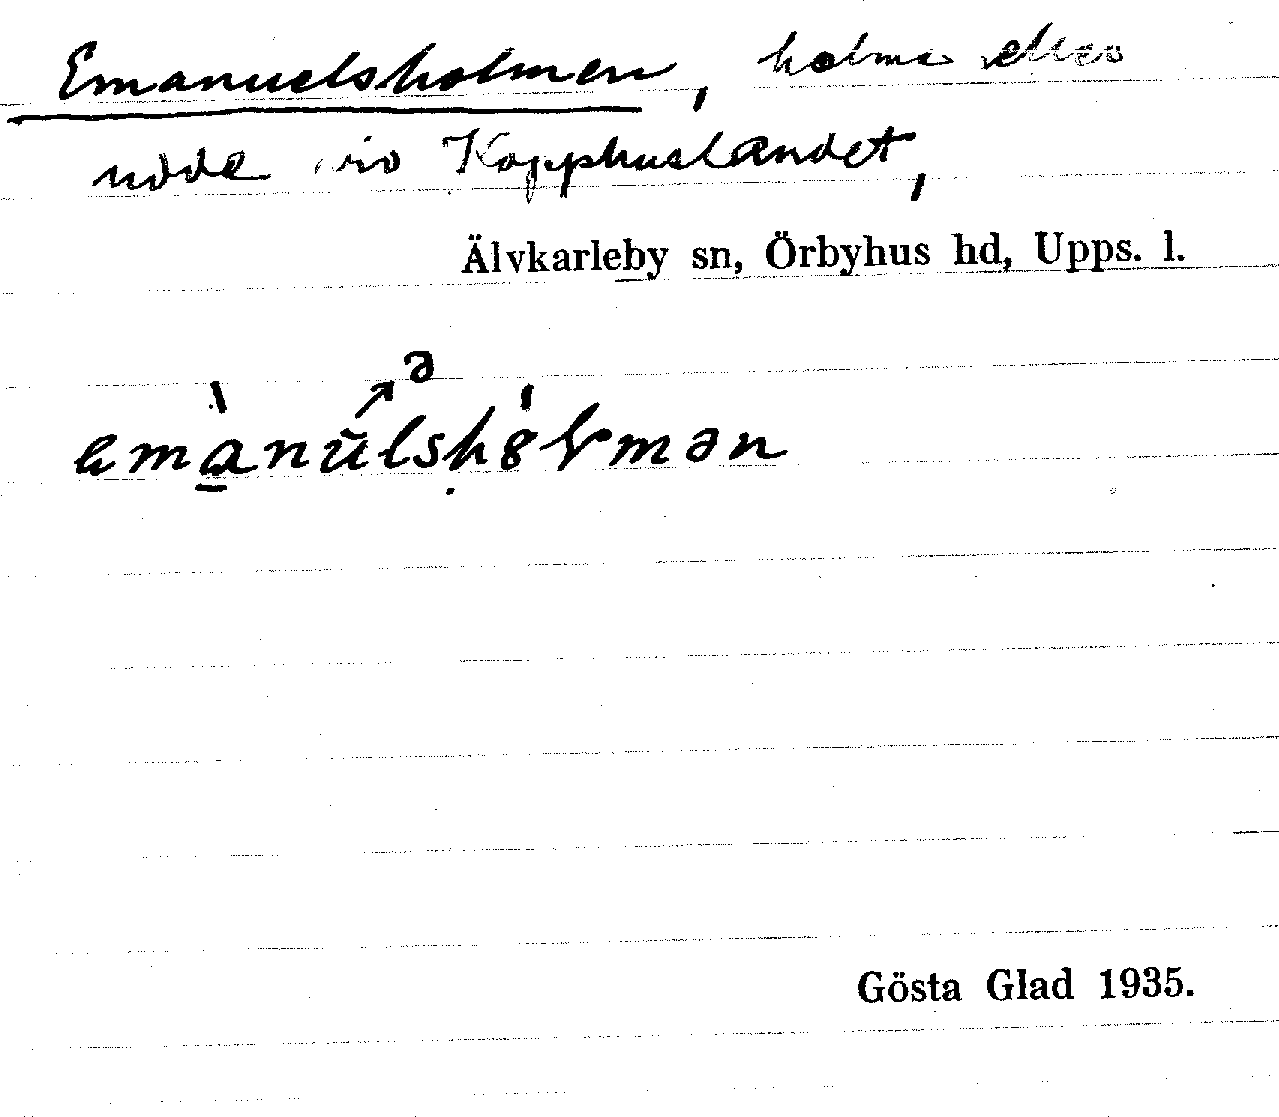 Emanuelsholmen, holme eller
udde vid Kopphuslandet,
Älvkarleby sn, Örbyhus hd, Upps. l.
Gösta Glad 1935.